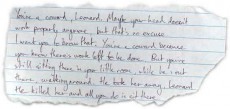 You're a coward, Leonard. Maybe your head doesn't
work properly anymore but that's no excuse.
I want you to know that. You're a coward because
you know there's work left to be done. But you're
still sitting there in your little room, while he is out
there, walking around. He took her away, Leonard.
He killed her and all you do is sit there